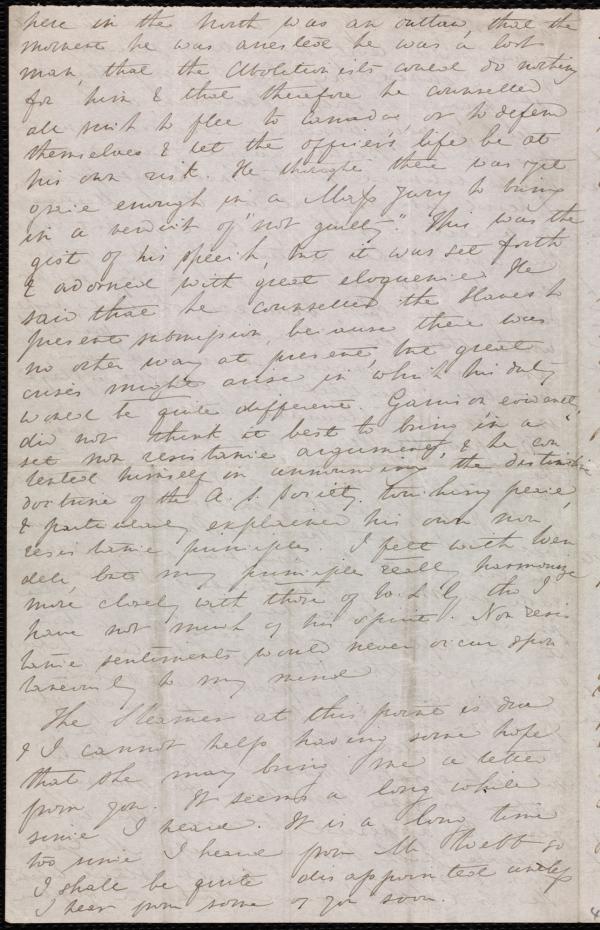 here in the North was an outlaw, that the
moment he was arrested he was a lost
man, that the Abolitionists could do nothing
for him & that therefore he counselled
all such to flee to Canada, or to defend
themselves & let the officer's life be at
his own risk. He thought there was yet
grace enough in a Mass Jury to bring
in a verdict of "not guilty." This was the
gist of his speech, but it was set forth
& adorned with great eloquence. He
said that he counselled the slaves to
present submission, because there was
no other way at present, but great
crises might arise in which his duty
would be quite different. Garrison evidently
did not think it best to bring in a
set non resistance argument, & he con
tented himself in announcing the distinctive
doctrine of the A. S. Society touching peace,
& particularly explained his own non
resistance principles. I felt with Wen
dell, but my principle really harmonize
more closely with those of W. L. G. tho' I
have not much of his spirit. Non resis
tance sentiments would never occur spon
taneously to my mind
The Steamer at this point is due
& I cannot help having some hope
that she may bring me a letter
from you. It seems a long while
since I heard. It is a long time
too since I heard from M. Webb so
I shall be quite disappointed unless
I hear from some of you soon.